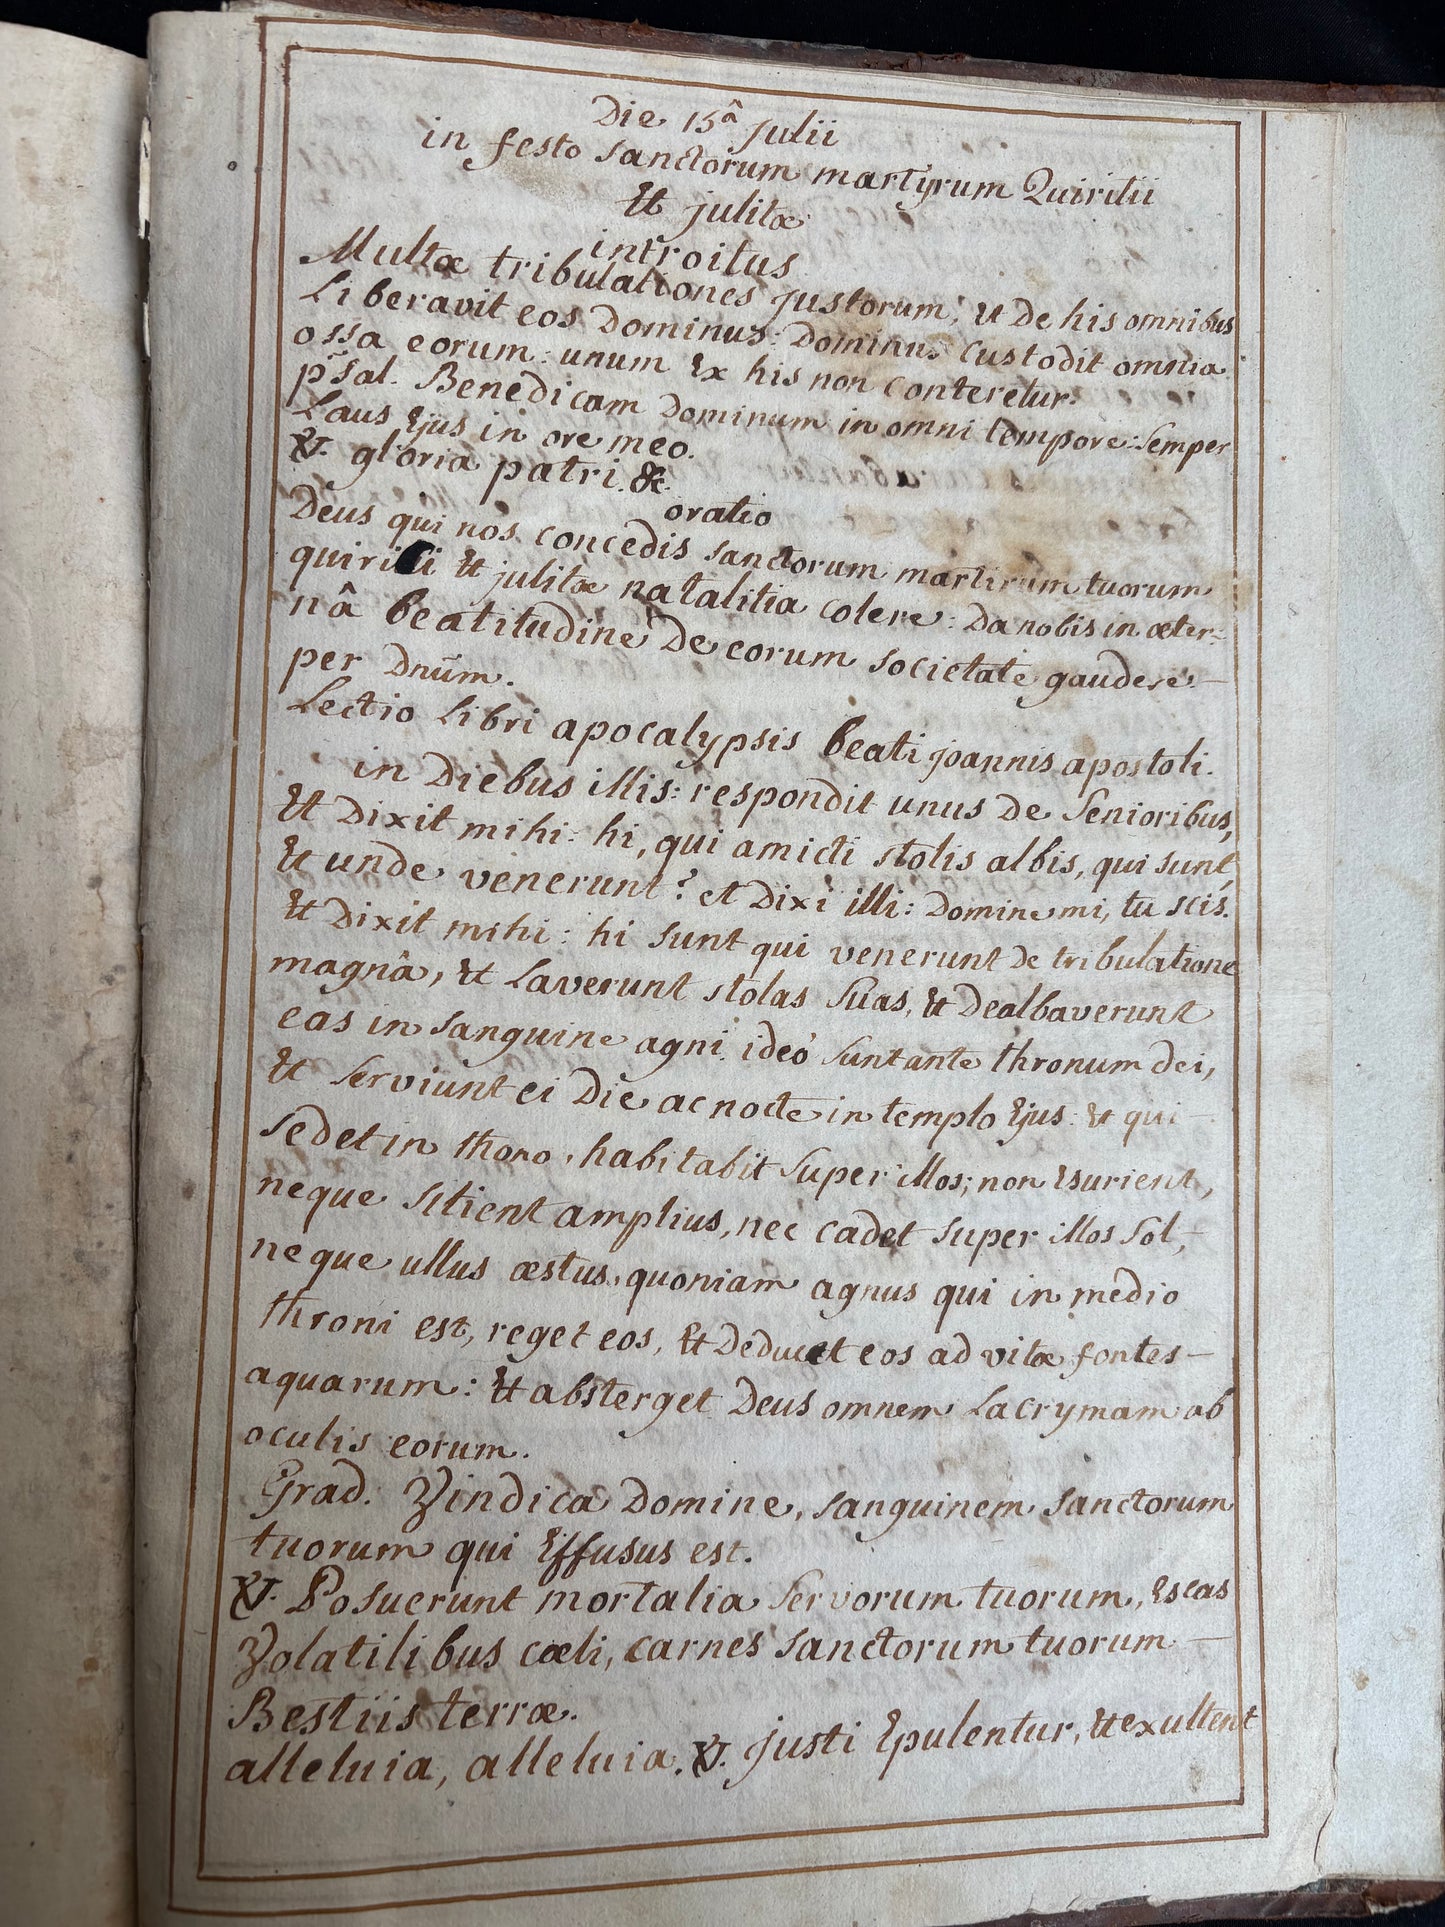 Die 15ª Julii
in festo Sanctorum martyrum Quiritii
Et julitæ
introitus
Multæ tribulationes justorum; Et De his omnibus
Liberavit eos Dominus: Dominus Custodit omnia
ossa eorum: unum Ex his non Conteretur.
psal. Benedicam Dominum in omni tempore: Semper
Laus Ejus in ore meo.
℣. gloria patri. &c.
oratio
Deus qui nos concedis Sanctorum martirum tuorum
quirici Et julitæ natalitia colere: Da nobis in æter=
nâ beatitudine De eorum Societate gaudere. —
per Dnum̄.
Lectio Libri apocalypsis beati joannis apostoli.
in Diebus illis: respondit unus De Senioribus,
Et Dixit mihi: hi, qui amicti stolis albis, qui sunt,
Et unde venerunt? et Dixi illi: Domine mi, tu scis.
Et Dixit mihi: hi sunt qui venerunt De tribulatione
magnâ, Et Laverunt stolas Suas, Et Dealbaverunt
eas in Sanguine agni. ideó Sunt ante thronum Dei,
Et Serviunt ei Die ac nocte in templo Ejus: Et qui —
Sedet in thono, habitabit Super illos; non Esurient,
neque Sitient amplius, nec cadet Super illos Sol, —
neque ullus æstus, quoniam agnus qui in medio
throni est, reget eos, Et Deducet eos ad vitæ fontes —
aquarum: Et absterget Deus omnem Lacrymam ab
oculis eorum.
Grad. Vindica Domine, Sanguinem Sanctorum
tuorum qui Effusus est.
℣. Posuerunt mortalia Servorum tuorum, Escas
Volatilibus cœli, Carnes Sanctorum tuorum —
Bestiis terræ.
alleluia, alleluia. ℣. justi Epulentur, Et exultent